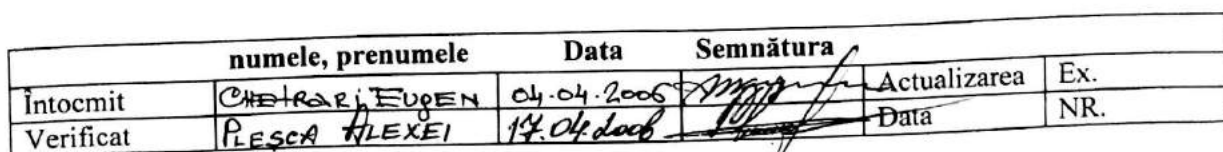 numele, prenumele Data Semnătura
Întocmit CHETRARI EUGEN 04.04.2006 Actualizarea Ex.
Verificat PLESCA ALEXEI 17.04.2006 Data NR.